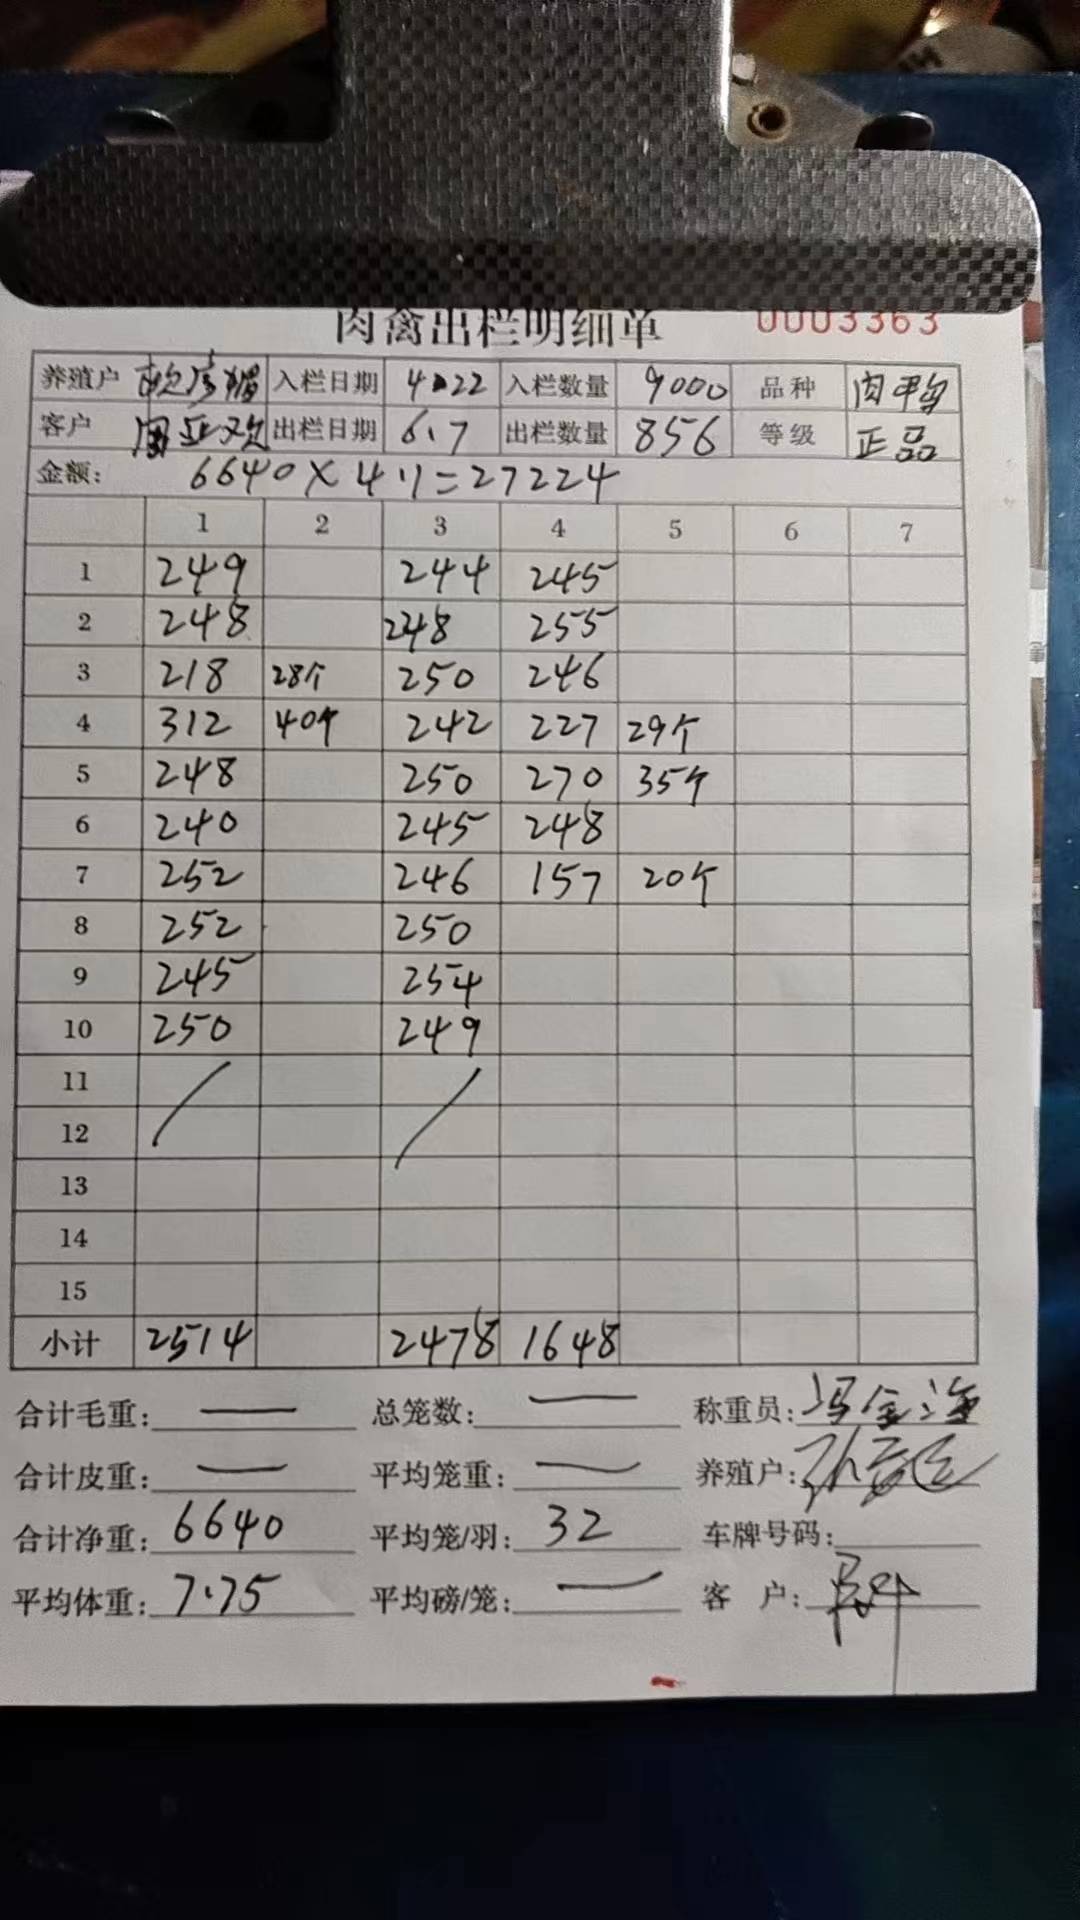 肉禽出栏明细单 0003363
养殖户 入栏日期 4.22 入栏数量 9000 品种 肉鸭
客户 周亚欢 出栏日期 6.7 出栏数量 856 等级 正品
金额: 6640×4.1=27224
1 2 3 4 5 6 7
1 249 244 245
2 248 248 255
3 218 28个 250 246
4 312 40个 242 227 29个
5 248 250 270 35个
6 240 245 248
7 252 246 157 20个
8 252 250
9 245 254
10 250 249
11
12
13
14
15
小计 2514 2478 1648
合计毛重: — 总笼数: — 称重员: 冯金海
合计皮重: — 平均笼重: — 养殖户:
合计净重: 6640 平均笼/羽: 32 车牌号码:
平均体重: 7.75 平均磅/笼: — 客 户: